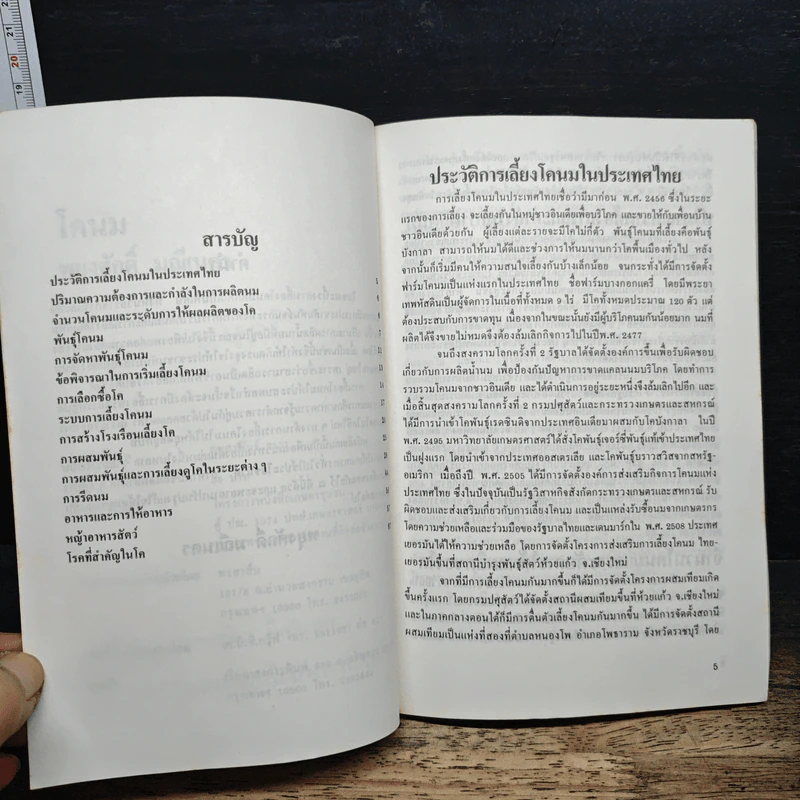 สารบัญ
ประวัติการเลี้ยงโคนมในประเทศไทย
ปริมาณความต้องการและกำลังในการผลิตนม
จำนวนโคนมและระดับการให้ผลผลิตของโค
พันธุ์โคนม
การจัดหาพันธุ์โคนม
ข้อพิจารณาในการเริ่มเลี้ยงโคนม
การเลือกซื้อโค
ระบบการเลี้ยงโคนม
การสร้างโรงเรือนเลี้ยงโค
การผสมพันธุ์
การผสมพันธุ์และการเลี้ยงดูโคในระยะต่าง ๆ
การรีดนม
อาหารและการให้อาหาร
หญ้าอาหารสัตว์
โรคที่สำคัญในโค
ประวัติการเลี้ยงโคนมในประเทศไทย
การเลี้ยงโคนมในประเทศไทยเชื่อว่ามีมาก่อน พ.ศ. 2456 ซึ่งในระยะ
แรกของการเลี้ยง จะเลี้ยงกันในหมู่ชาวอินเดียเพื่อบริโภค และขายให้กับเพื่อนบ้าน
ชาวอินเดียด้วยกัน ผู้เลี้ยงแต่ละรายจะมีโคไม่กี่ตัว พันธุ์โคนมที่เลี้ยงคือพันธุ์
บังกาลา สามารถให้นมได้ดีและช่วงการให้นมนานกว่าโคพื้นเมืองทั่วไป หลัง
จากนั้นก็เริ่มมีคนให้ความสนใจเลี้ยงกันบ้างเล็กน้อย จนกระทั่งได้มีการจัดตั้ง
ฟาร์มโคนมเป็นแห่งแรกในประเทศไทย ชื่อฟาร์มบางกอกแดรี่ โดยมีพระยา
เทพหัสดินเป็นผู้จัดการในเนื้อที่ทั้งหมด 9 ไร่ มีโคทั้งหมดประมาณ 120 ตัว แต่
ต้องประสบกับการขาดทุน เนื่องจากในขณะนั้นยังมีผู้บริโภคนมกันน้อยมาก นมที่
ผลิตได้จึงขายไม่หมดจึงต้องล้มเลิกกิจการไปในปีพ.ศ. 2477
จนถึงสงครามโลกครั้งที่ 2 รัฐบาลได้จัดตั้งองค์การขึ้นเพื่อรับผิดชอบ
เกี่ยวกับการผลิตน้ำนม เพื่อป้องกันปัญหาการขาดแคลนนมบริโภค โดยทำการ
รวบรวมโคนมจากชาวอินเดีย และได้ดำเนินการอยู่ระยะหนึ่งจึงล้มเลิกไปอีก และ
เมื่อสิ้นสุดสงครามโลกครั้งที่ 2 กรมปศุสัตว์และกระทรวงเกษตรและสหกรณ์
ได้มีการนำเข้าโคพันธุ์เรดซินดิจากประเทศอินเดียมาผสมกับโคบังกาลา ในปี
พ.ศ. 2495 มหาวิทยาลัยเกษตรศาสตร์ได้สั่งโคพันธุ์เจอร์ซี่พันธุ์แท้เข้าประเทศไทย
เป็นฝูงแรก โดยนำเข้าจากประเทศออสเตรเลีย และโคพันธุ์บราวสวิสจากสหรัฐ-
อเมริกา เมื่อถึงปี พ.ศ. 2505 ได้มีการจัดตั้งองค์การส่งเสริมกิจการโคนมแห่ง
ประเทศไทย ซึ่งในปัจจุบันเป็นรัฐวิสาหกิจสังกัดกระทรวงเกษตรและสหกรณ์ รับ
ผิดชอบและส่งเสริมเกี่ยวกับการเลี้ยงโคนม และเป็นแหล่งรับซื้อนมจากเกษตรกร
โดยความช่วยเหลือและร่วมมือของรัฐบาลไทยและเดนมาร์กใน พ.ศ. 2508 ประเทศ
เยอรมันได้ให้ความช่วยเหลือ โดยการจัดตั้งโครงการส่งเสริมการเลี้ยงโคนม ไทย-
เยอรมันขึ้นที่สถานีบำรุงพันธุ์สัตว์ห้วยแก้ว จ.เชียงใหม่
จากที่มีการเลี้ยงโคนมกันมากขึ้นก็ได้มีการจัดตั้งโครงการผสมเทียมเกิด
ขึ้นครั้งแรก โดยกรมปศุสัตว์ได้จัดตั้งสถานีผสมเทียมขึ้นที่ห้วยแก้ว จ.เชียงใหม่
และในภาคกลางตอนใต้ก็มีการตื่นตัวเลี้ยงโคนมกันมากขึ้น ได้มีการจัดตั้งสถานี
ผสมเทียมเป็นแห่งที่สองที่ตำบลหนองโพ อำเภอโพธาราม จังหวัดราชบุรี โดย
5